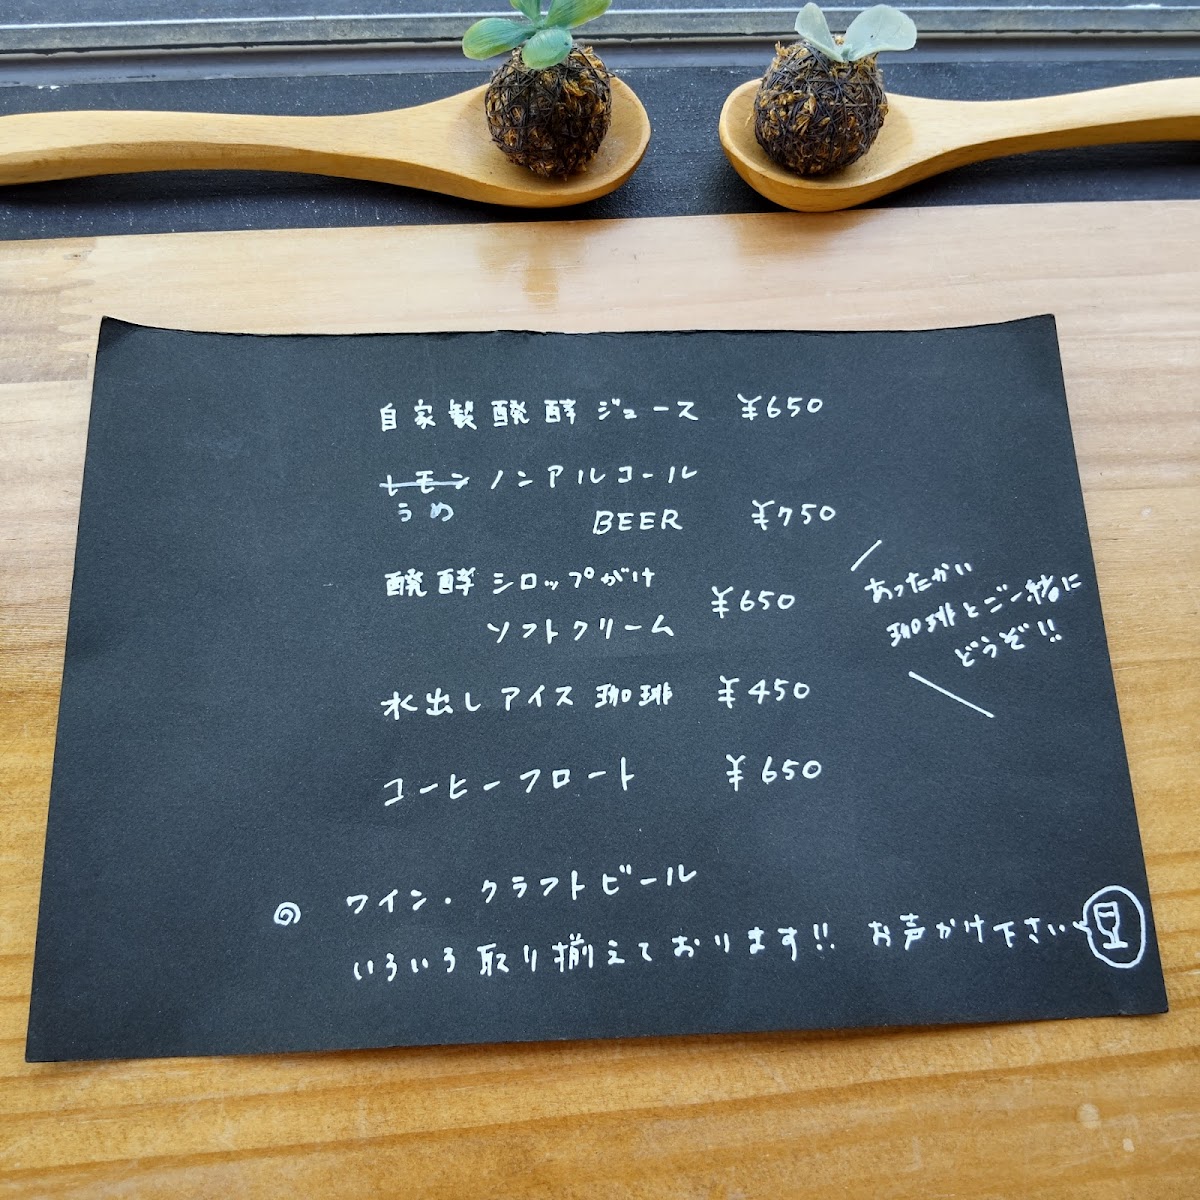 自家製醗酵ジュース ¥650
レモン ノンアルコール
うめ
BEER ¥750
醗酵シロップがけ
ソフトクリーム ¥650
あったかい
珈琲とご一緒に
どうぞ!!
水出しアイス珈琲 ¥450
コーヒーフロート ¥650
ワイン・クラフトビール
いろいろ取り揃えております!! お声かけ下さい